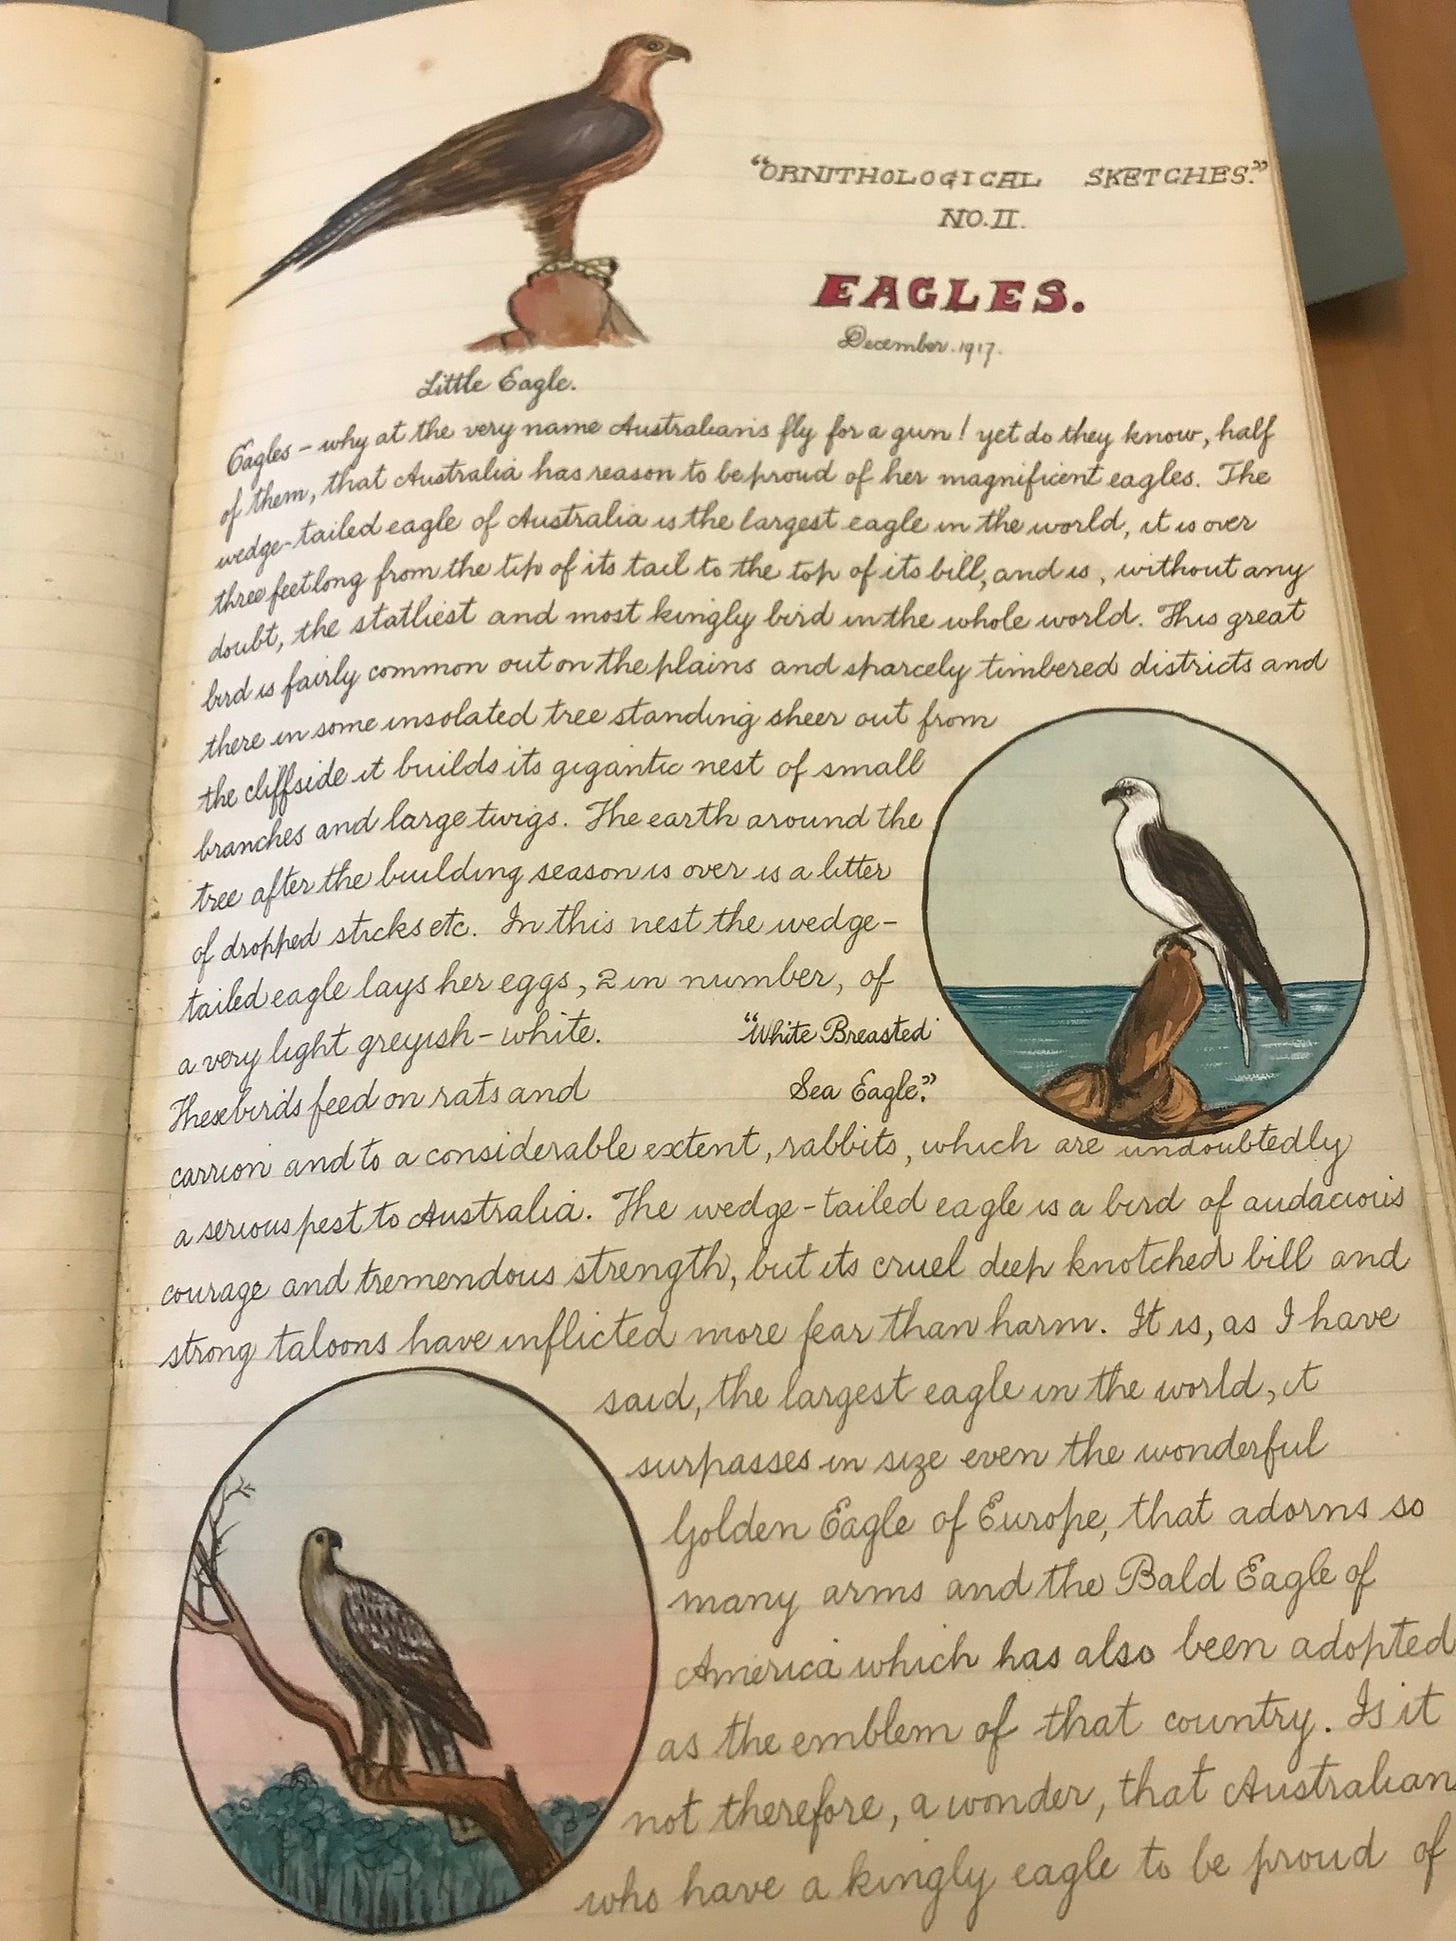 "ORNITHOLOGICAL SKETCHES."
NO. II.
EAGLES.
December. 1917.
Little Eagle.
Eagles – why at the very name Australians fly for a gun! yet do they know, half
of them, that Australia has reason to be proud of her magnificent eagles. The
wedge-tailed eagle of Australia is the largest eagle in the world, it is over
three feet long from the tip of its tail to the top of its bill, and is, without any
doubt, the statliest and most kingly bird in the whole world. This great
bird is fairly common out on the plains and sparcely timbered districts and
there in some insolated tree standing sheer out from
the cliffside it builds its gigantic nest of small
branches and large twigs. The earth around the
tree after the building season is over is a litter
of dropped sticks etc. In this nest the wedge-
tailed eagle lays her eggs, 2 in number, of
a very light greyish-white.
"White Breasted
Sea Eagle."
These birds feed on rats and
carrion and to a considerable extent, rabbits, which are undoubtedly
a serious pest to Australia. The wedge-tailed eagle is a bird of audacious
courage and tremendous strength, but its cruel deep knotched bill and
strong taloons have inflicted more fear than harm. It is, as I have
said, the largest eagle in the world, it
surpasses in size even the wonderful
Golden Eagle of Europe, that adorns so
many arms and the Bald Eagle of
America which has also been adopted
as the emblem of that country. Is it
not therefore, a wonder, that Australian
who have a kingly eagle to be proud of